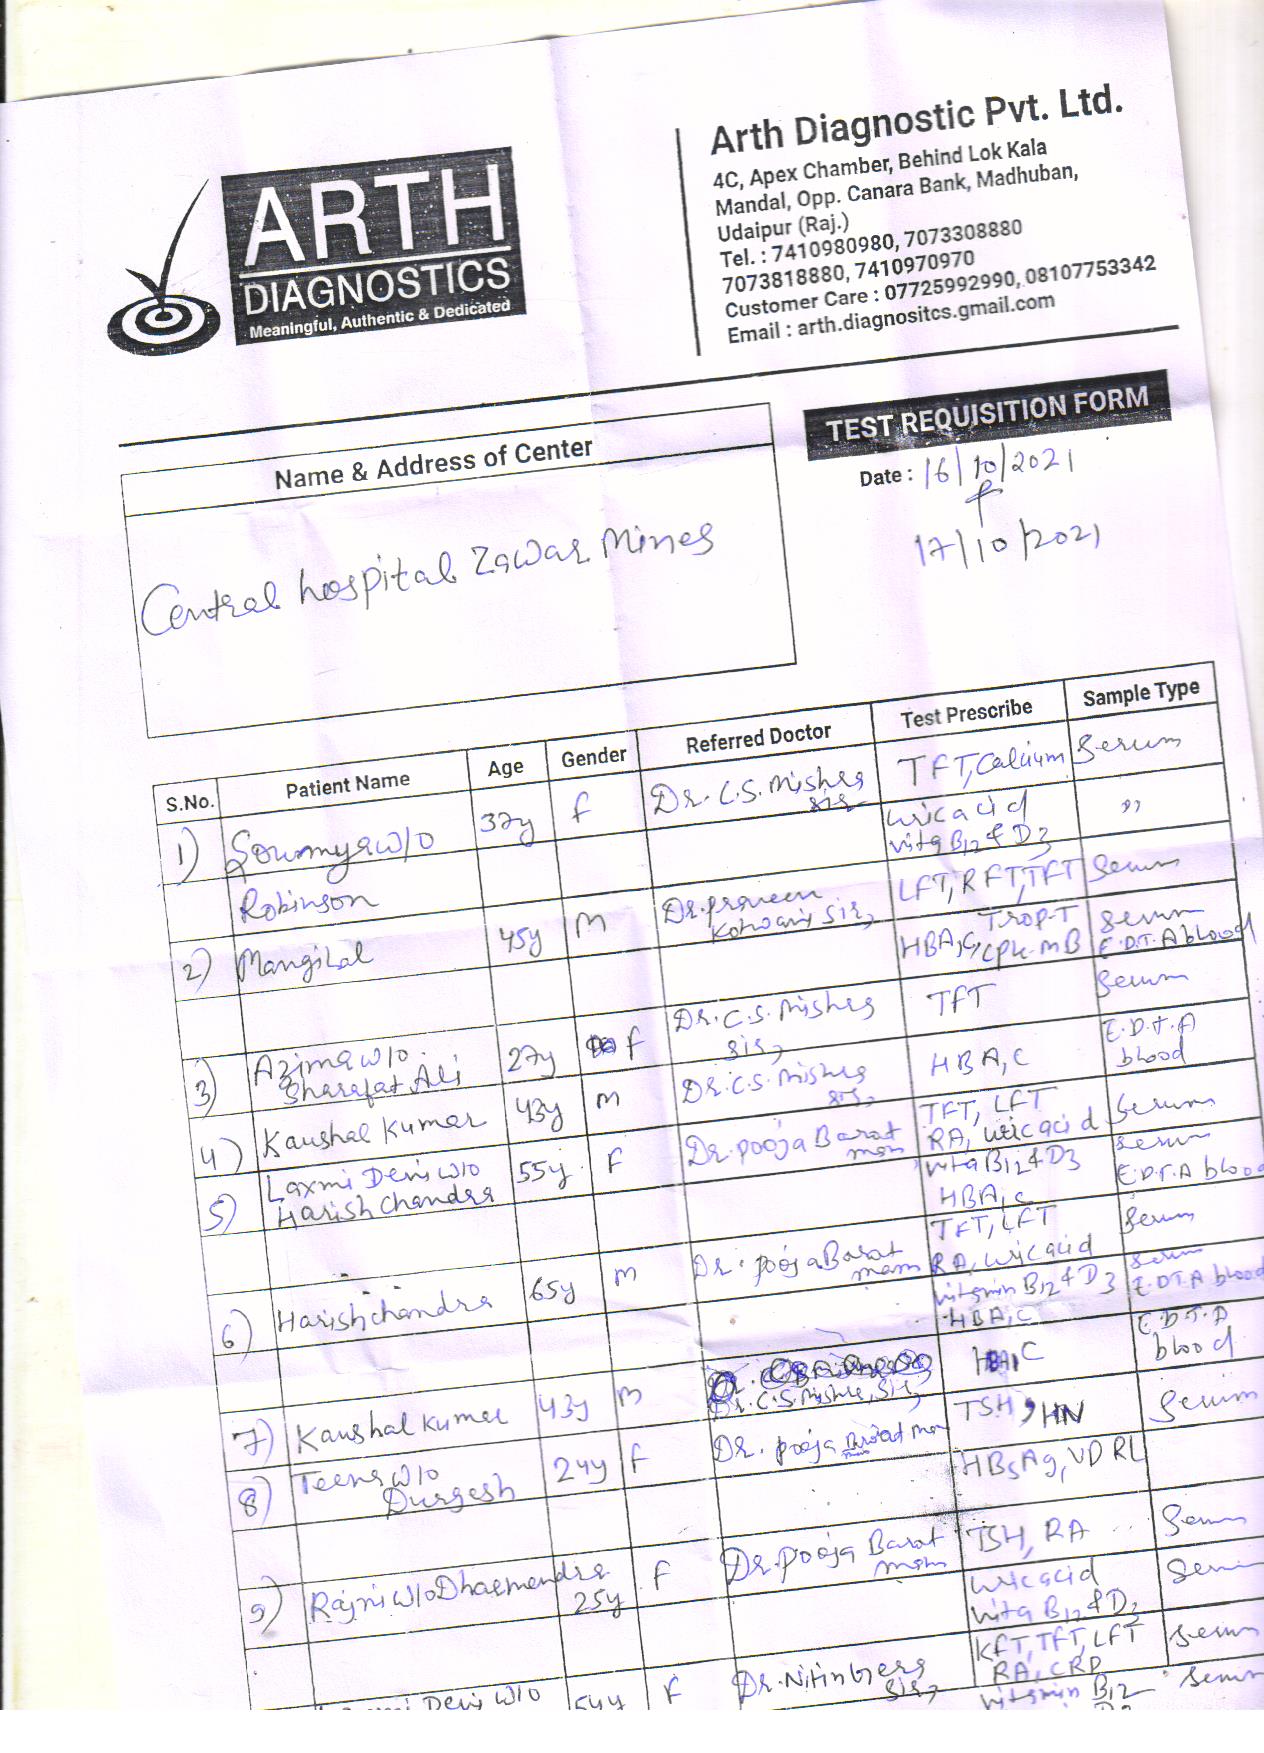 ARTH
DIAGNOSTICS
Meaningful, Authentic & Dedicated
Arth Diagnostic Pvt. Ltd.
4C, Apex Chamber, Behind Lok Kala
Mandal, Opp. Canara Bank, Madhuban,
Udaipur (Raj.)
Tel. : 7410980980, 7073308880
7073818880, 7410970970
Customer Care : 07725992990, 08107753342
Email : arth.diagnositcs.gmail.com
TEST REQUISITION FORM
Date : 16/10/2021
17/10/2021
Name & Address of Center
Central hospital Zawar Mines
S.No. Patient Name Age Gender Referred Doctor Test Prescribe Sample Type
1) Soumya w/o 37y F Dr. C.S. Mishra sir TFT, Calcium Serum
Robinson uric acid ,,
vita B12 & D3
2) Mangilal 45y M Dr. Praveen Kotwani Sir, LFT, RFT, TFT Serum
HBA,C, Trop-T Serum
CPK-MB E.D.T.A blood
3) Azima w/o 27y F Dr. C.S. Mishra sir, TFT Serum
Sharafat Ali
4) Kaushal Kumar 43y M Dr. C.S. Mishra sir, HBA,C E.D.T.A blood
5) Laxmi Devi w/o 55y F Dr. Pooja Barat mam TFT, LFT Serum
Harish Chandra RA, uric acid
vita B12 & D3 Serum
HBA,C E.D.T.A blood
6) Harish chandra 65y M Dr. Pooja Barat mam TFT, LFT Serum
RA, uric acid
vitamin B12 & D3 Serum
HBA,C E.D.T.A blood
7) Kaushal Kumar 43y M Dr. C.S. Mishra, Sir, C E.D.T.A blood
8) Teena w/o 24y F Dr. pooja mam TSH, HIV Serum
Durgesh HBsAg, VDRL
9) Rajni w/o Dharmendra 25y F Dr. Pooja Barat mam TSH, RA Serum
uric acid Serum
vita B12 & D3
Devi w/o 54y F Dr. Nitin sir, KFT, TFT, LFT Serum
RA, CRP
vitamin B12 Serum